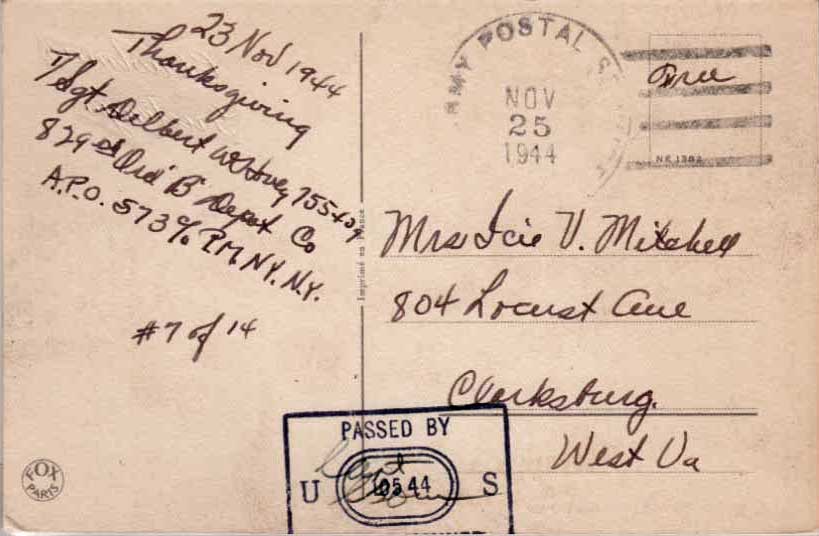 23 Nov 1944
Thanksgiving
T/Sgt. Delbert W Hovey
829 Ord "B" Depot Co
A.P.O. 573 c/o P.M. N.Y. N.Y.
#7 of 14
FOX
PARIS
Imprimé en France
ARMY POSTAL S
NOV
25
1944
Free
NK 138
Mrs Icie V. Mitchell
804 Locust Ave
Clarksburg.
West Va
PASSED BY
U 0544 S
Capt